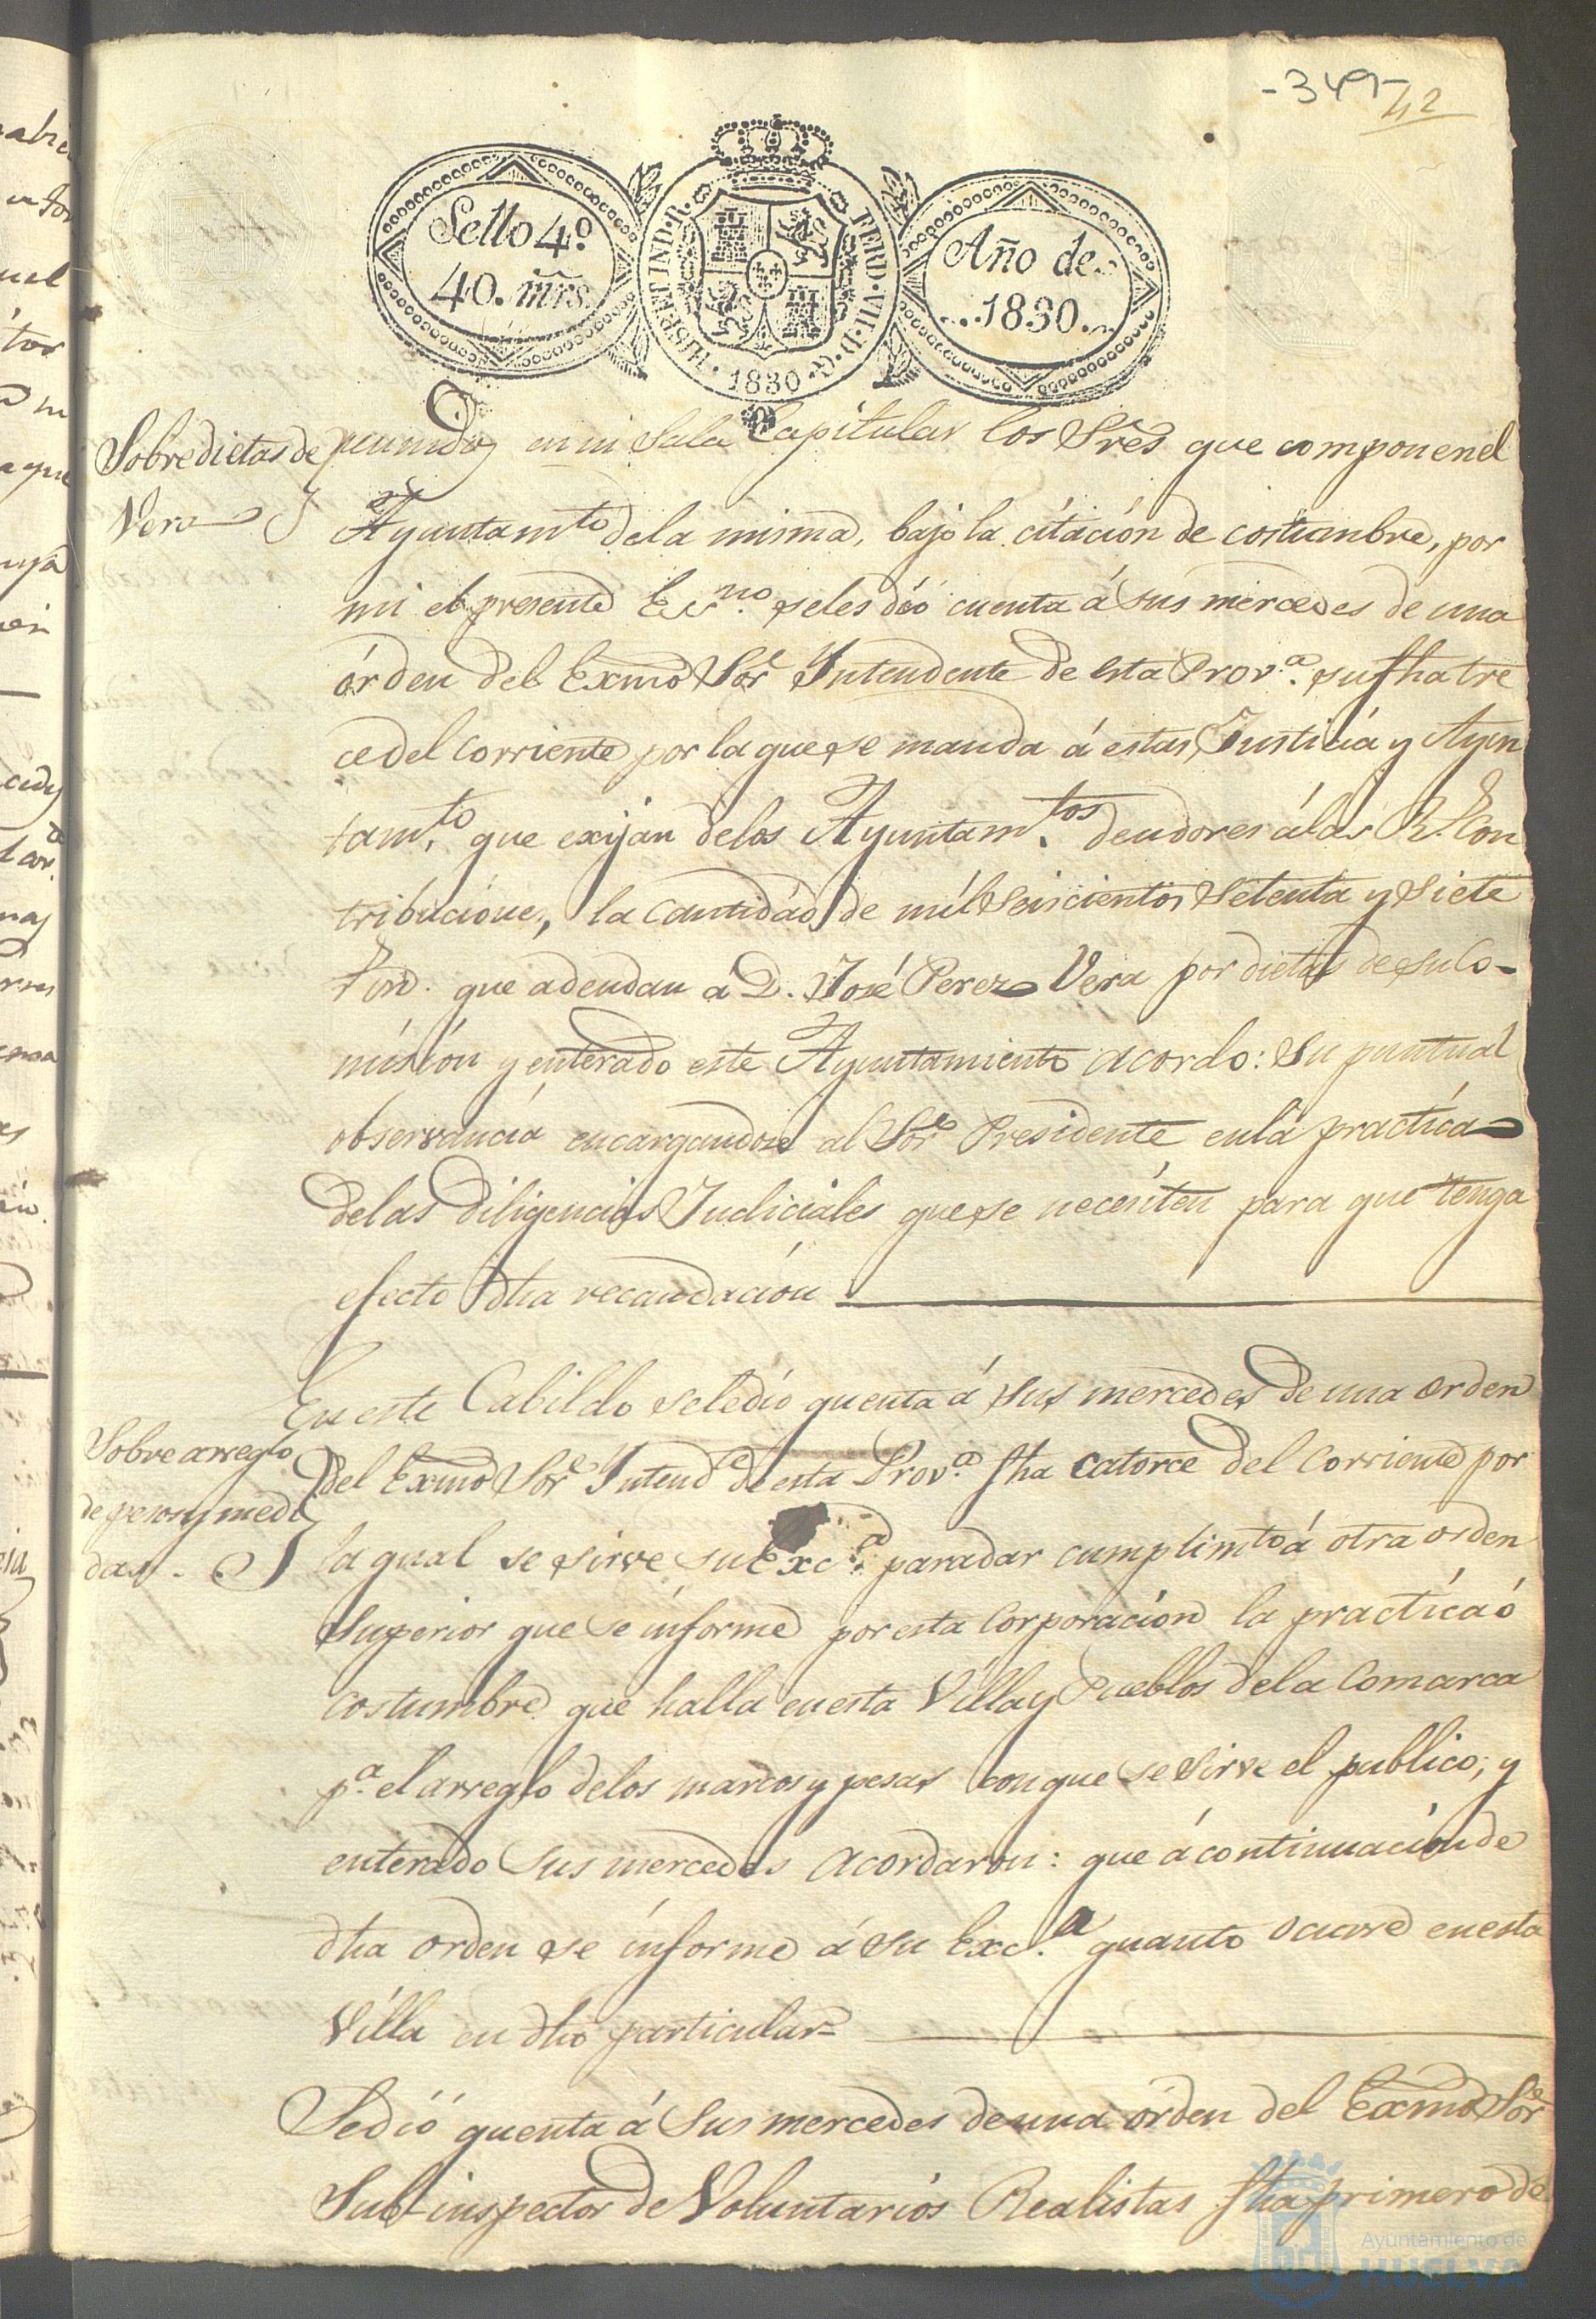 -349-
42
Sello 4º
40. mrs.
HISP. ET IND. R.
FERD. VII. D. G.
1830
Año de
1830
Sobre dietas de
Vera
reunidos en su Sala Capitular los Sres que componen el
Ayuntamto. de la misma, bajo la citación de costumbre, por
mi el presente Ecno. se les dió cuenta á sus mercedes de una
órden del Exmo Sor Intendente de esta Prova. su fha tre
ce del corriente por la que se manda á estas Justicia y Ayun
tamto. que exijan de los Ayuntamtos. deudores á las Rs. Con
tribucione, la cantidad de mil seiscientos setenta y siete
que adeudan a D. José Perez Vera por dietas de su Co-
misión y enterado este Ayuntamiento acordo: Su puntual
observancia encargandose al Sor Presidente en la practica
de las diligencias Judiciales que se necesiten para que tenga
efecto dha recaudación
Sobre arreglo
de pesos y medi
das.
En este Cabildo se le dió quenta á sus mercedes de una orden
del Exmo Sor Intende de esta Prova. fha catorce del corriente por
la qual se sirve su Exca. para dar cumplimto á otra orden
Superior que se informe por esta Corporación la practica ó
costumbre que halla en esta Villa y Pueblos de la Comarca
pa. el arreglo de los marcos y pesas con que se sirve el publico; y
enterado sus mercedes acordaron: que á continuación de
dha orden se informe á su Exca. quanto ocurre en esta
Villa en dho particular=
Se dió quenta á sus mercedes de una órden del Exmo Sor
Sub-inspector de Voluntarios Realistas fha primero de
Ayuntamiento de
HUELVA